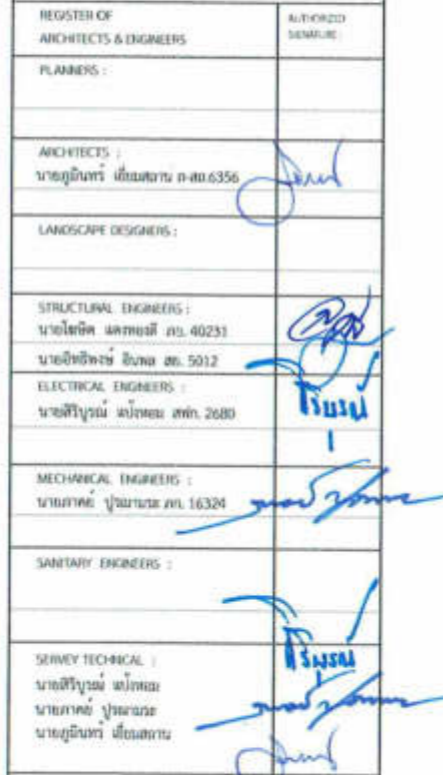 REGISTER OF
ARCHITECTS & ENGINEERS
AUTHORIZED
SIGNATURE:
PLANNERS :
ARCHITECTS :
นายภูมินทร์ เอี่ยมสถาน ภ-สถ.6356
LANDSCAPE DESIGNERS :
STRUCTURAL ENGINEERS :
นายโฆษิต แดงทองดี ภย. 40231
นายอิทธิพงษ์ อินพล สย. 5012
ELECTRICAL ENGINEERS :
นายสิริบูรณ์ แป้งหอม สฟก. 2680
สิริบูรณ์
MECHANICAL ENGINEERS :
นายภาคย์ ปูรณานระ ภก. 16324
SANITARY ENGINEERS :
สิริบูรณ์
SERVEY TECHNICAL :
นายสิริบูรณ์ แป้งหอม
นายภาคย์
นายภูมินทร์ เอี่ยมสถาน